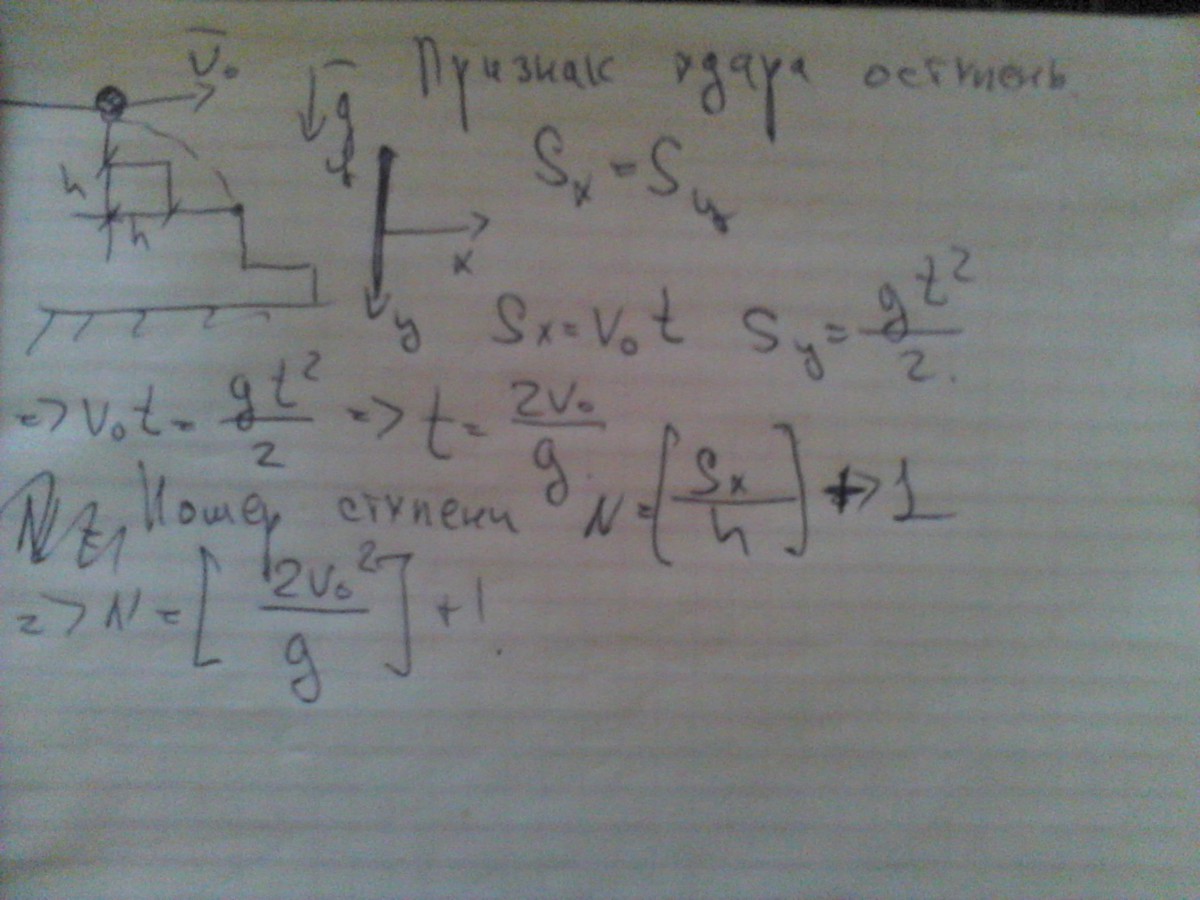 V̅₀ g̅ Признак удара оступень
h h x y
Sx = Sy
Sx = V₀t Sy = gt²/2.
=> V₀t = gt²/2 => t = 2V₀/g
Номер ступени N = [Sx/h] + 1
=> N = [2V₀²/g] + 1.